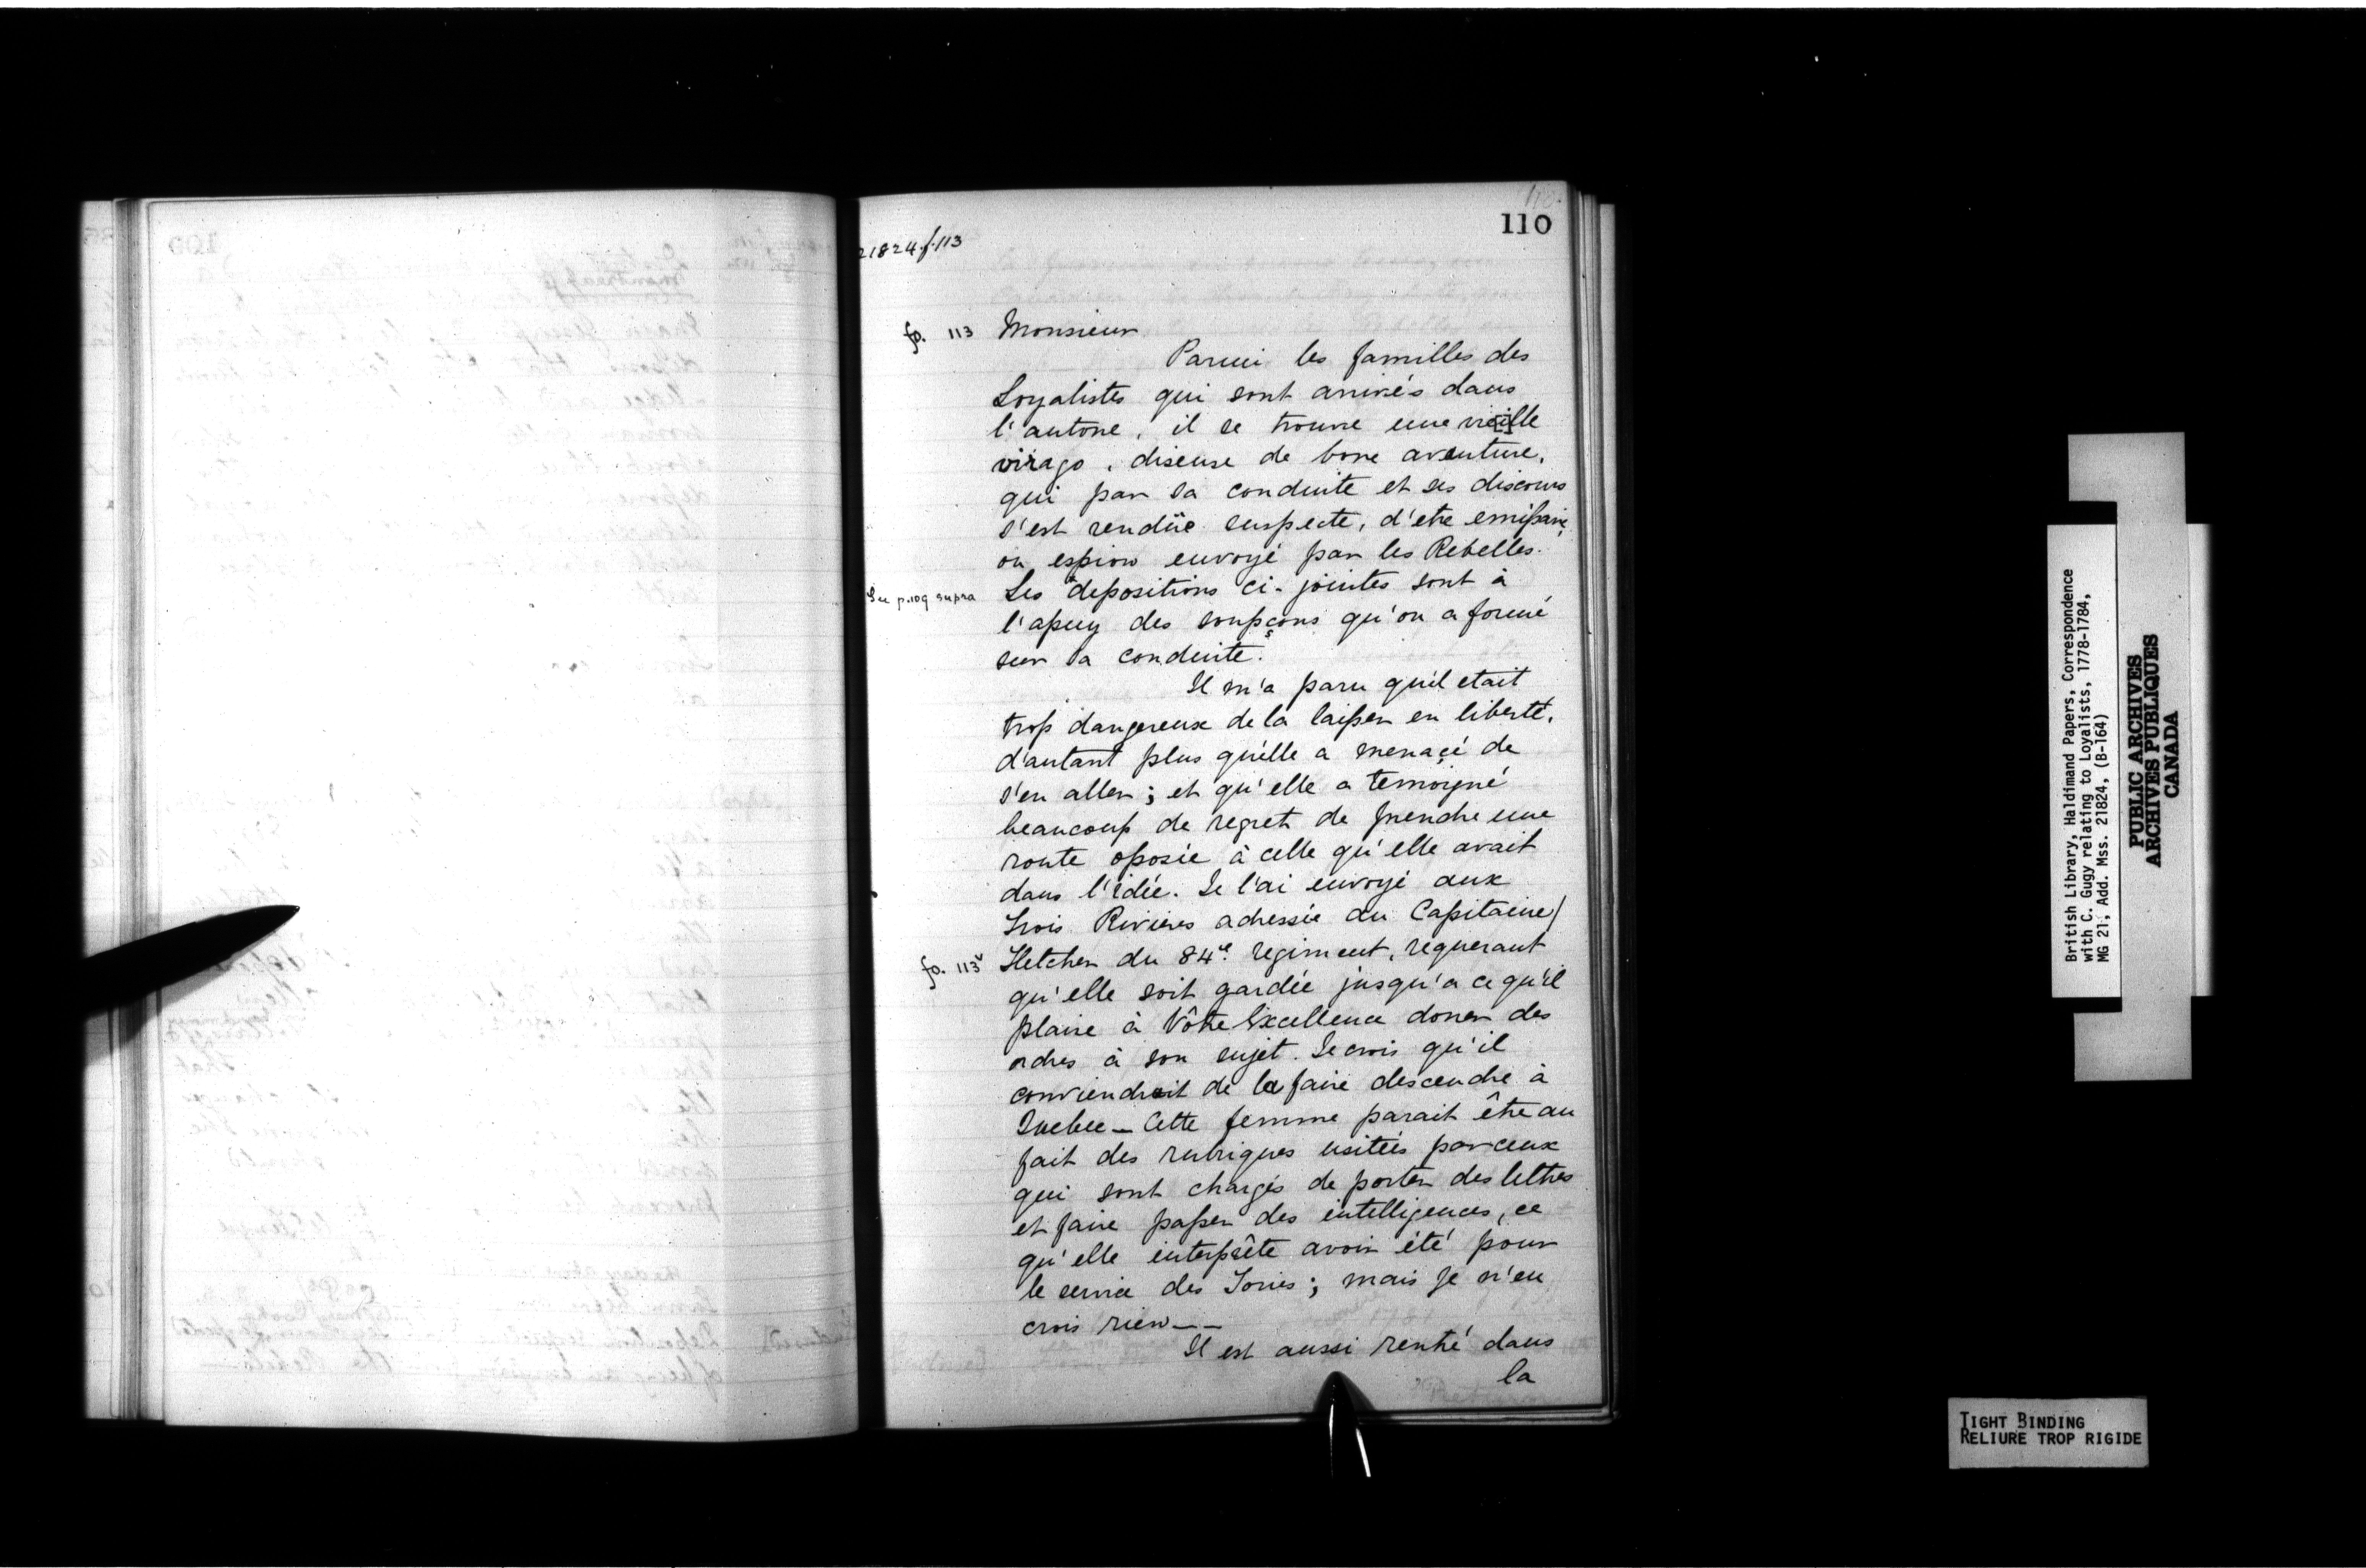 110
21824.f.113
fo. 113 Monsieur
Parmi les familles des
Loyalistes qui sont arrivés dans
l'autone, il se trouve une vie[i]lle
virago, diseuse de bone aventure,
qui par sa conduite et ses discours
s'est rendüe suspecte, d'etre emissaire,
ou espion envoyé par les Rebelles.
See p.109 supra Les depositions ci-jointes sont à
l'apuy des soupçons qu'on a formé
sur sa conduite.
Il m'a paru qu'il etait
trop dangereux de la laisser en liberté,
d'autant plus qu'elle a menaçé de
s'en aller; et qu'elle a temoigné
beaucoup de regret de prendre une
route oposée à celle qu'elle avait
dans l'idée. Je l'ai envoyé aux
Trois Rivieres adressée au Capitaine/
fo. 113v Fletcher du 84e. regiment, requerant
qu'elle soit gardée jusqu'a ce qu'il
plaire à Vôtre Excellence doner des
ordres à son sujet. Je crois qu'il
conviendroit de la faire descendre à
Quebec — Cette femme parait être au
fait des rubriques usitées par ceux
qui sont chargés de porter des lettres
et faire passer des intelligences, ce
qu'elle interprête avoir été pour
le service des Tories; mais je n'en
crois rien — —
Il est aussi rentré dans
la
British Library, Haldimand Papers, Correspondence
with C. Gugy relating to Loyalists, 1778-1784,
MG 21, Add. Mss. 21824, (B-164)
PUBLIC ARCHIVES
ARCHIVES PUBLIQUES
CANADA
TIGHT BINDING
RELIURE TROP RIGIDE